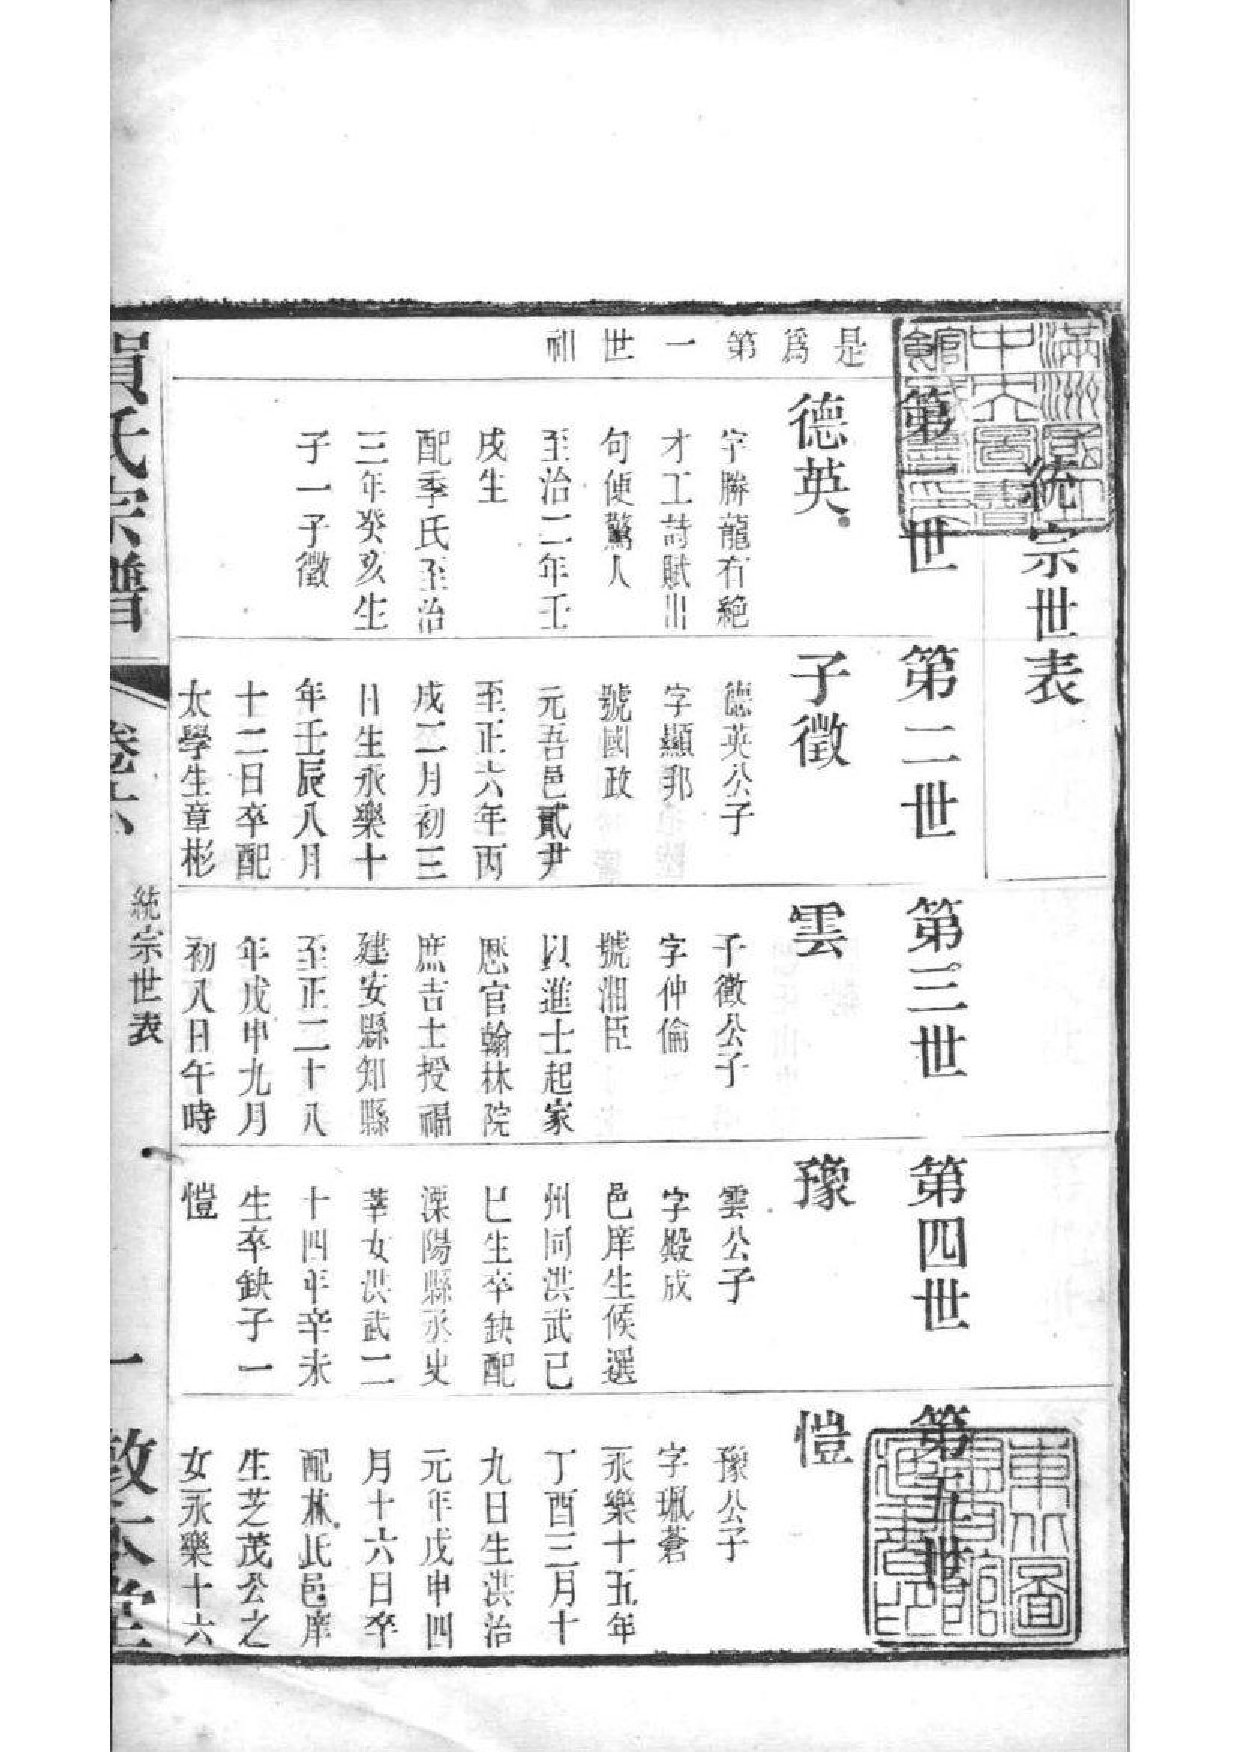 統宗世表
是爲第一世祖
第一世
德英
字勝龍有絕
才工詩賦出
句便驚人
至治二年壬
戌生
配季氏至治
三年癸亥生
子一子徵
第二世
子徵
德英公子
字顯邦
號國政
元吾邑貳尹
至正六年丙
戌二月初三
日生永樂十
年壬辰八月
十二日卒配
太學生章彬
第三世
雲
子徵公子
字仲倫
號湘臣
以進士起家
歷官翰林院
庶吉士授福
建安縣知縣
至正二十八
年戊申九月
初八日午時
第四世
豫
雲公子
字殿成
邑庠生候選
州同洪武已
巳生卒缺配
溧陽縣丞史
莘女洪武二
十四年辛未
生卒缺子一
愷
第五世
愷
豫公子
字珮蒼
永樂十五年
丁酉三月十
九日生洪治
元年戊申四
月十六日卒
配林氏邑庠
生芝茂公之
女永樂十六
賀氏宗譜
卷六
統宗世表
一
敦本堂